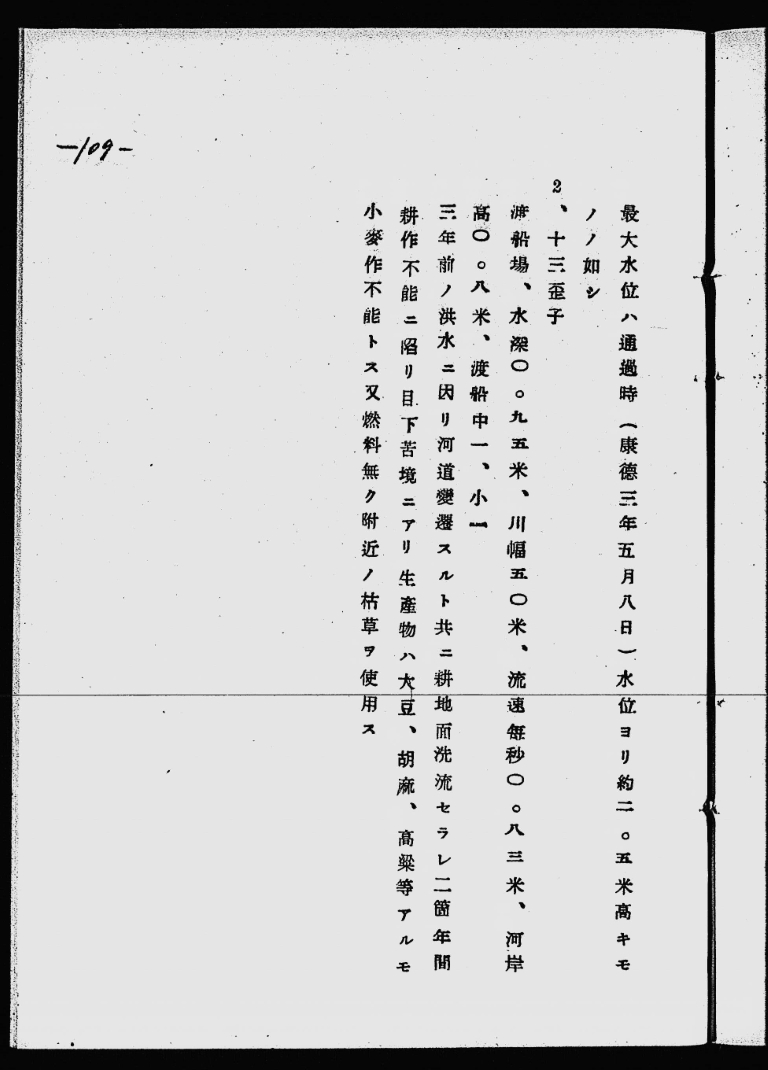 最大水位ハ通過時(康德三年五月八日)水位ヨリ約二。五米高キモ
ノノ如シ
2、十三歪子
渡船場、水深〇。九五米、川幅五〇米、流速每秒〇。八三米、河岸
高〇。八米、渡船中一、小一
三年前ノ洪水ニ因リ河道變遷スルト共ニ耕地面洗流セラレ二箇年間
耕作不能ニ陷リ目下苦境ニアリ生產物ハ大豆、胡麻、高粱等アルモ
小麥作不能トス又燃料無ク附近ノ枯草ヲ使用ス
-109-